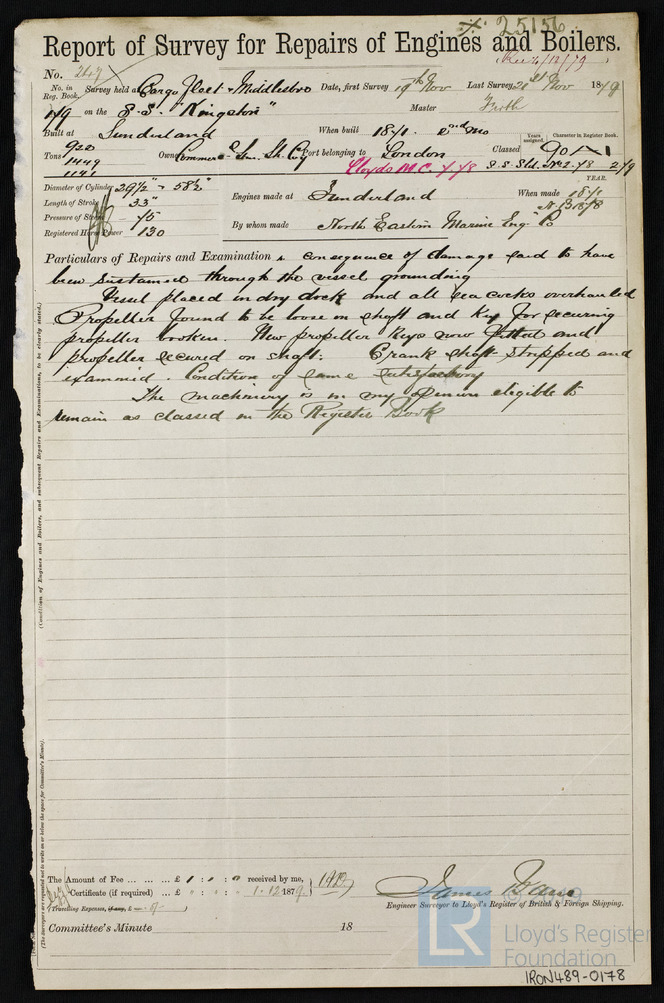 25156
Report of Survey for Repairs of Engines and Boilers.
Rec 2/12/79
No. 2647
No. in Reg. Book. Survey held at Cargo Fleet & Middlesbro Date, first Survey 19th Nov Last Survey 21st Nov 1879
179 on the S.S. "Kingston" Master Firth
Built at Sunderland When built 1871. 2nd mo Years assigned. Character in Register Book.
Tons 920 1449 1141 Owners Commercl Stm. Sh. Coy Port belonging to London Classed 90A1
Lloyds M.C. 7/78 S.S. Sld. No 2. 78 2/79
Diameter of Cylinders 29½" & 58½" YEAR.
Length of Stroke 33" Engines made at Sunderland When made 1871
Pressure of Steam 75 N.B. 1878
Registered Horse Power 130 By whom made North Eastern Marine Eng. Co
Particulars of Repairs and Examination in consequence of damage said to have
been sustained through the vessel grounding
Vessel placed in dry dock and all sea cocks overhauled
Propeller found to be loose on shaft and key for securing
propeller broken. New propeller keys now fitted and
propeller secured on shaft: Crank shaft stripped and
examined. Condition of same satisfactory
The machinery is in my opinion eligible to
remain as classed in the Register Book
(Condition of Engines and Boilers, and subsequent Repairs and Examinations, to be clearly stated.)
(The Surveyors are requested not to write on or below the space for Committee's Minute.)
The Amount of Fee ... ... ... £ 1 : " : " received by me,
Certificate (if required) ... £ " : " : " 1.12.1879
Travelling Expenses, if any, £
James
Engineer Surveyor to Lloyd's Register of British & Foreign Shipping.
Committee's Minute 18
LR
Lloyd's Register
Foundation
IRON489-0178